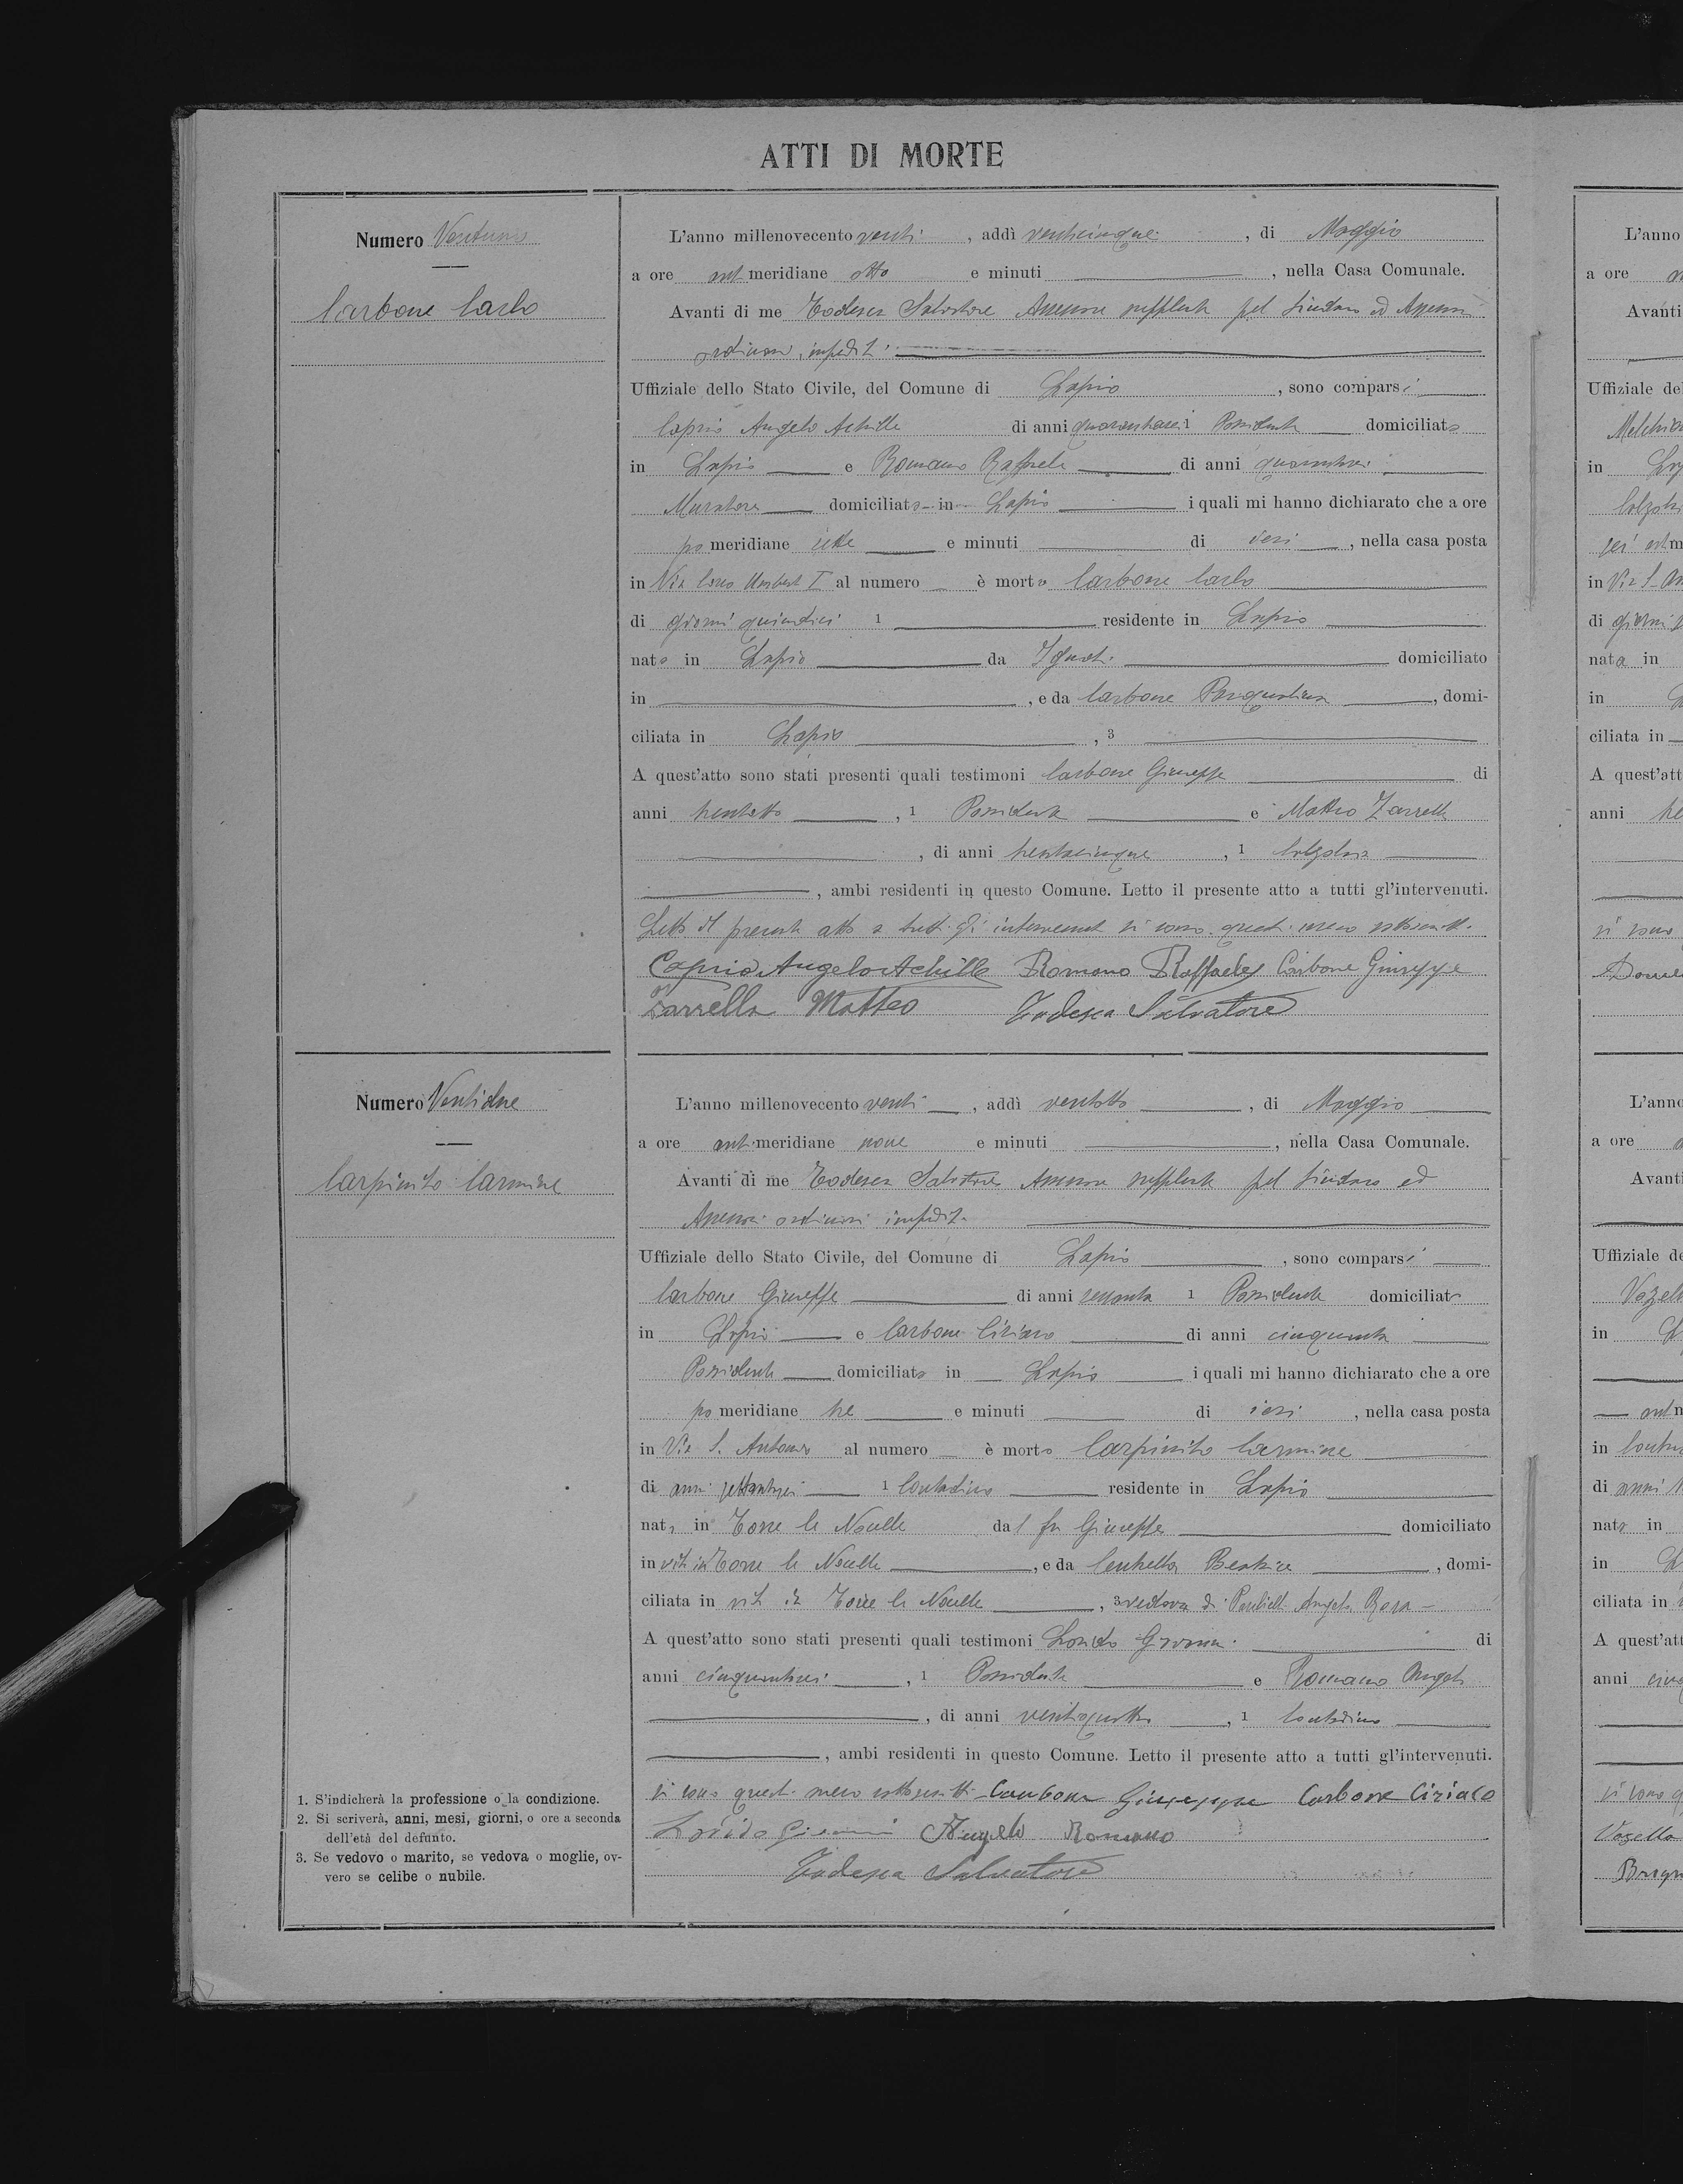 ATTI DI MORTE
Numero Ventuno
Carbone Carlo
L'anno millenovecento venti, addì venticinque, di Maggio
a ore ant meridiane otto e minuti, nella Casa Comunale.
Avanti di me Todesca Salvatore Assessore supplente pel Sindaco ed Assessori
ordinari impediti
Uffiziale dello Stato Civile, del Comune di Lapio, sono comparsi
Caprio Angelo Achille di anni 1 Possidente domiciliato
in Lapio e Romano Raffaele di anni
Muratore domiciliato in Lapio i quali mi hanno dichiarato che a ore
po meridiane sette e minuti di ieri, nella casa posta
in Via Corso Umberto I al numero è morto Carbone Carlo
di giorni quindici 1 residente in Lapio
nato in Lapio da Ignoti domiciliato
in, e da Carbone Pasqualina, domi-
ciliata in Lapio, 3
A quest'atto sono stati presenti quali testimoni Carbone Giuseppe di
anni trentotto, 1 Possidente e Matteo Zarrella
, di anni trentacinque, 1 Calzolaio
, ambi residenti in questo Comune. Letto il presente atto a tutti gl'intervenuti.
Letto il presente atto a tutti gli intervenuti si sono questi meco sottoscritti.
Caprio Angelo Achille Romano Raffaele Carbone Giuseppe
Zarrella Matteo Todesca Salvatore
Numero Ventidue
Carpinito Carmine
L'anno millenovecento venti, addì ventotto, di Maggio
a ore ant meridiane nove e minuti, nella Casa Comunale.
Avanti di me Todesca Salvatore Assessore supplente pel Sindaco ed
Assessori ordinari impediti
Uffiziale dello Stato Civile, del Comune di Lapio, sono comparsi
Carbone Giuseppe di anni sessanta 1 Possidente domiciliato
in Lapio e Carbone Ciriaco di anni cinquanta
Possidente domiciliato in Lapio i quali mi hanno dichiarato che a ore
po meridiane tre e minuti di ieri, nella casa posta
in Via S. Antonio al numero è morto Carpinito Carmine
di anni settantasei 1 Contadino residente in Lapio
nato in Torre le Nocelle dal fu Giuseppe domiciliato
in vita in Torre le Nocelle, e da Centrella Beatrice, domi-
ciliata in vita in Torre le Nocelle, 3 vedovo di Angela Rosa
A quest'atto sono stati presenti quali testimoni Lorido Giovanni di
anni, 1 Possidente e Romano Angelo
, di anni ventiquattro, 1 Contadino
, ambi residenti in questo Comune. Letto il presente atto a tutti gl'intervenuti.
si sono questi meco sottoscritti Carbone Giuseppe Carbone Ciriaco
Lorido Giovanni Angelo Romano
Todesca Salvatore
1. S'indicherà la professione o la condizione.
2. Si scriverà, anni, mesi, giorni, o ore a seconda
dell'età del defunto.
3. Se vedovo o marito, se vedova o moglie, ov-
vero se celibe o nubile.
L'anno
a ore
Avanti
Uffiziale de
in
in Via S.
di giorni
nata in
in
ciliata in
A quest'att
anni
si sono
L'anno
a ore
Avanti
Uffiziale de
in
in
di anni
nato in
in
ciliata in
A quest'att
anni
si sono
Vozella